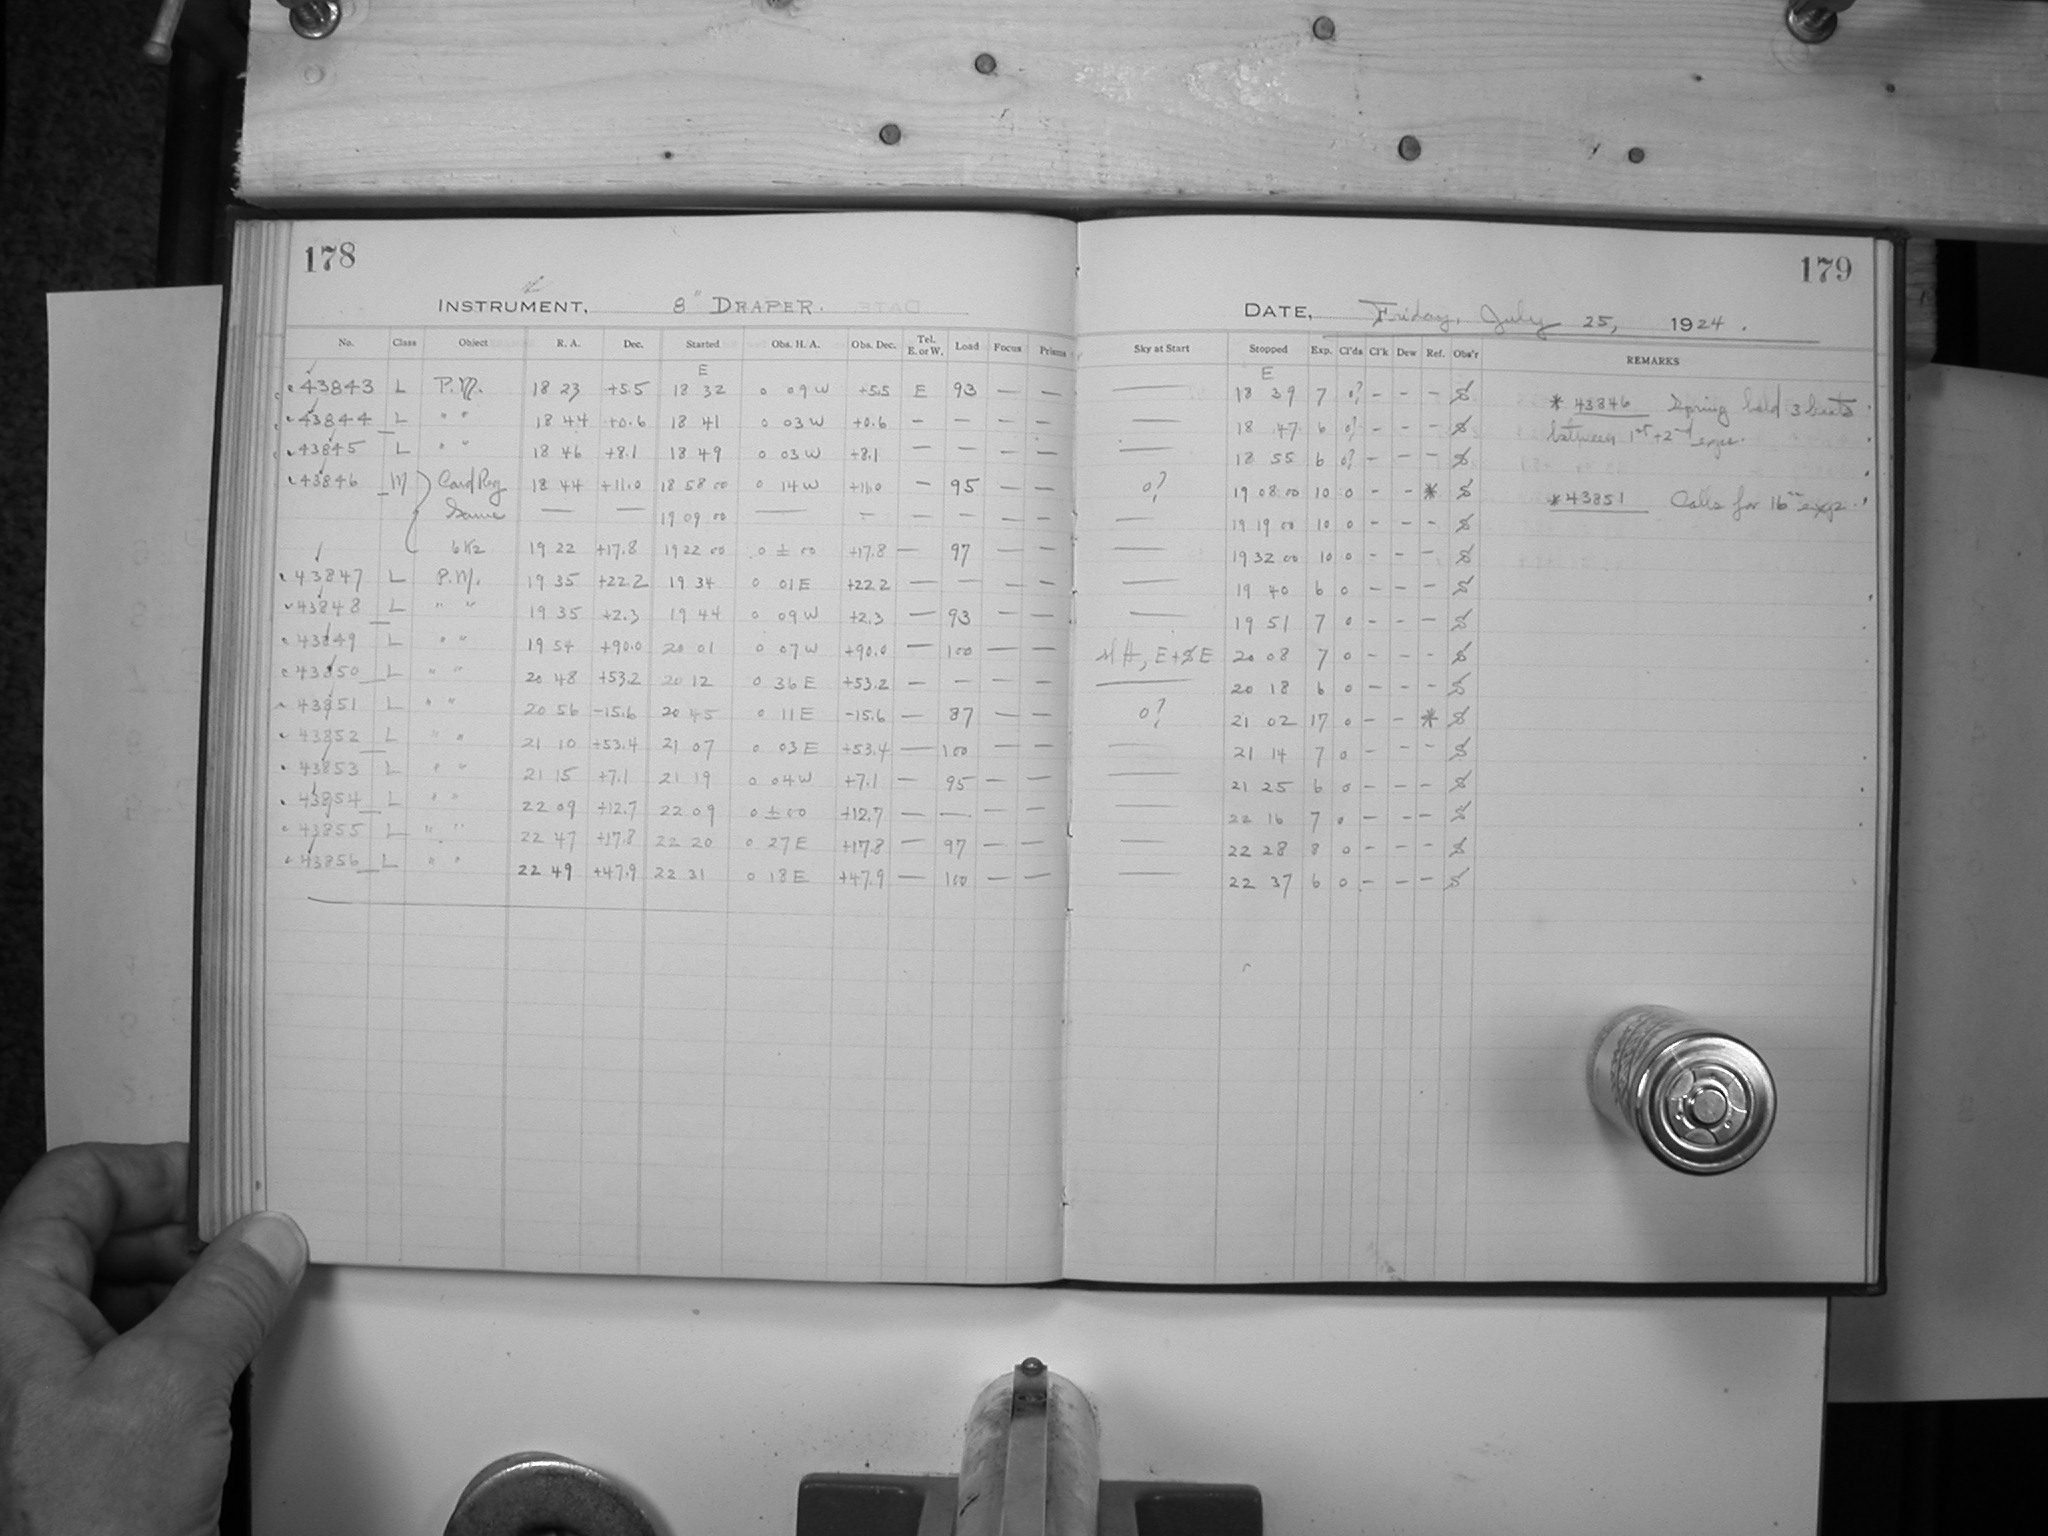 178
INSTRUMENT, 8" DRAPER.
No. Class Object R. A. Dec. Started Obs. H. A. Obs. Dec. Tel. E. or W. Load Focus Prisms
E
43843 L P.M. 18 23 +5.5 18 32 0 09 W +5.5 E 93 — —
43844 L " " 18 44 +0.6 18 41 0 03 W +0.6 — — — —
43845 L " " 18 46 +8.1 18 49 0 03 W +8.1 — — — —
43846 M Card Reg 18 44 +11.0 18 58 00 0 14 W +11.0 — 95 — —
Same — — 19 09 00 — — — — — —
19 22 +17.8 19 22 00 0 ± 00 +17.8 — 97 — —
43847 L P.M. 19 35 +22.2 19 34 0 01 E +22.2 — — — —
43848 L " " 19 35 +2.3 19 44 0 09 W +2.3 — 93 — —
43849 L " " 19 54 +90.0 20 01 0 07 W +90.0 — 100 — —
43850 L " " 20 48 +53.2 20 12 0 36 E +53.2 — — — —
43851 L " " 20 56 -15.6 20 45 0 11 E -15.6 — 87 — —
43852 L " " 21 10 +53.4 21 07 0 03 E +53.4 — 100 — —
43853 L " " 21 15 +7.1 21 19 0 04 W +7.1 — 95 — —
43854 L " " 22 09 +12.7 22 09 0 ± 00 +12.7 — — — —
43855 L " " 22 47 +17.8 22 20 0 27 E +17.8 — 97 — —
43856 L " " 22 49 +47.9 22 31 0 18 E +47.9 — 100 — —
179
DATE, Friday, July 25, 1924.
Sky at Start Stopped Exp. Cl'ds Cl'k Dew Ref. Obs'r REMARKS
E
— 18 39 7 0? — — — S
* 43846 Spring held 3 beats
— 18 47 6 0? — — — S
between 1st + 2nd exps.
— 18 55 6 0? — — — S
0? 19 08 00 10 0 — — * S
* 43851 Calls for 16m exp.
— 19 19 00 10 0 — — — S
19 32 00 10 0 — — — S
— 19 40 6 0 — — — S
— 19 51 7 0 — — — S
E + SE 20 08 7 0 — — — S
— 20 18 6 0 — — — S
0? 21 02 17 0 — — * S
— 21 14 7 0 — — — S
— 21 25 6 0 — — — S
— 22 16 7 0 — — — S
— 22 28 8 0 — — — S
— 22 37 6 0 — — — S